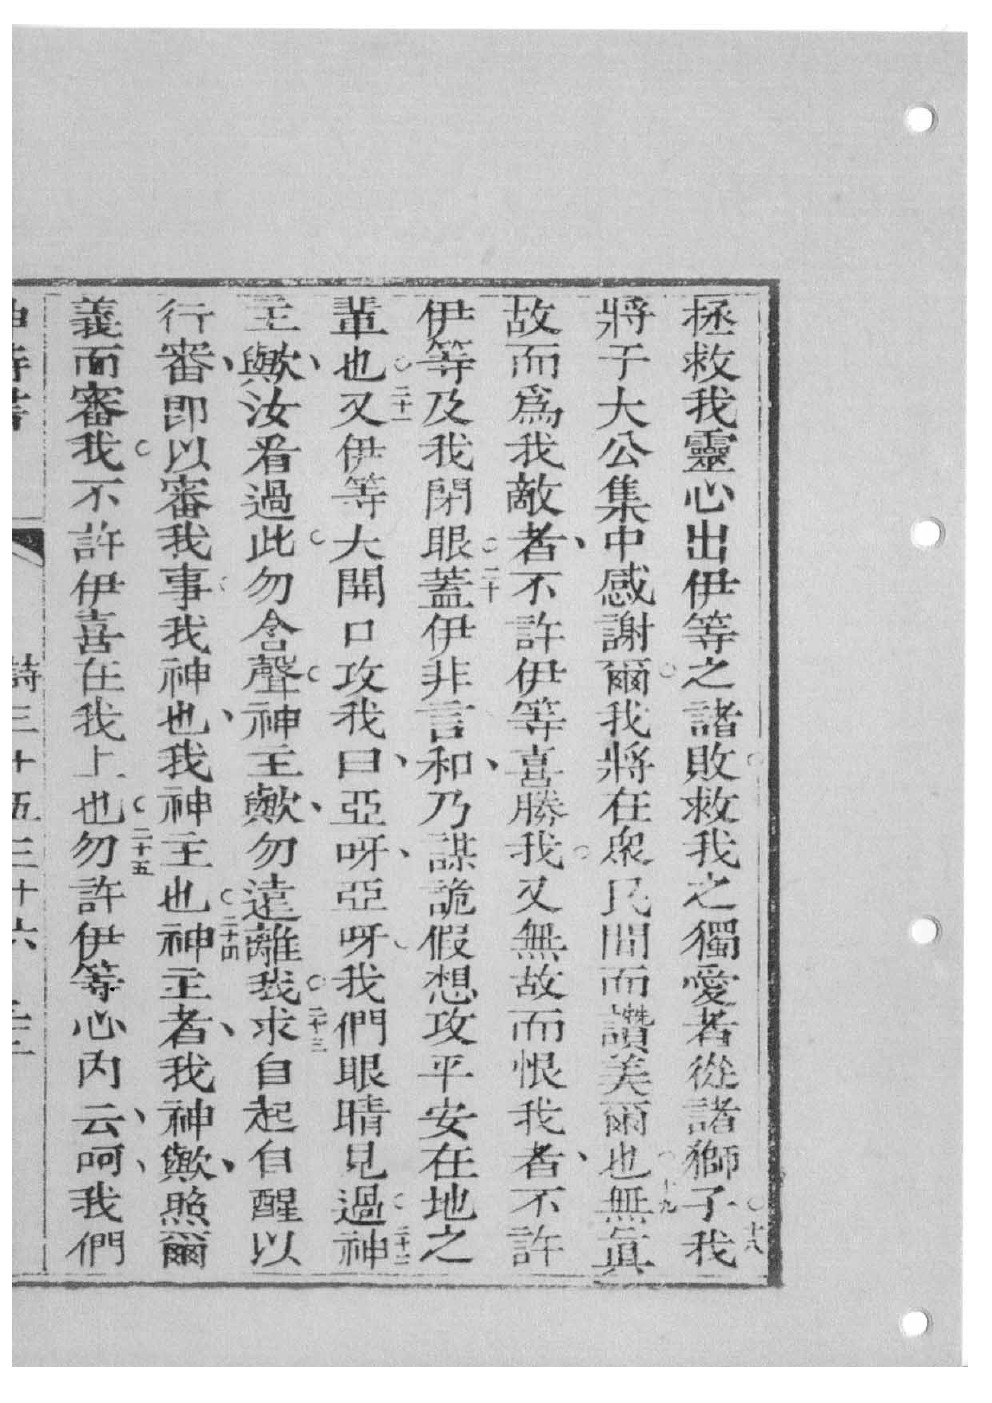 拯救我靈心出伊等之諸敗救我之獨愛者從諸獅子。十八我
將于大公集中感謝爾。我將在衆民間而讚美爾也。十九無眞
故而爲我敵者、不許伊等喜勝我。又無故而恨我者、不許
伊等及我閉眼。二十蓋伊非言和、乃謀詭假想攻平安在地之
輩也。二十一又伊等大開口攻我曰、亞呀、亞呀。我們眼睛見過。二十二神
主歟、與汝看過此。勿含聲。神主歟、勿遠離我。二十三求自起自醒以
行審、即以審我事。我神也、我神主也。二十四神主者、我神歟、照爾
義而審我。不許伊喜在我上也。二十五勿許伊等心內云、呵、我們
詩三十五三十六